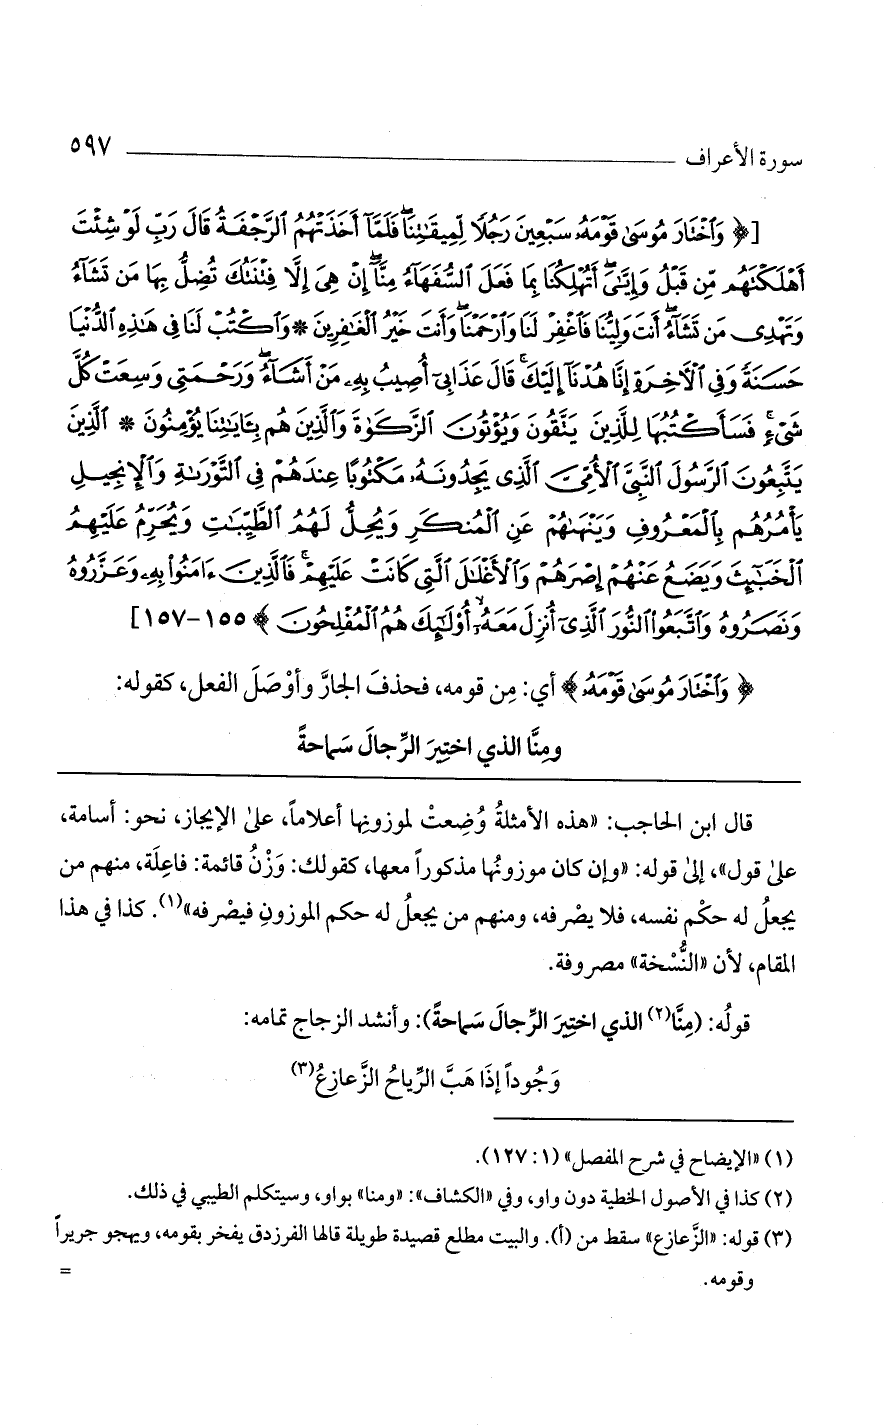 سورة الأعراف ٥٩٧
[﴿ وَٱخْتَارَ مُوسَىٰ قَوْمَهُۥ سَبْعِينَ رَجُلًا لِّمِيقَٰتِنَا ۖ فَلَمَّآ أَخَذَتْهُمُ ٱلرَّجْفَةُ قَالَ رَبِّ لَوْ شِئْتَ
أَهْلَكْتَهُم مِّن قَبْلُ وَإِيَّٰىَ ۖ أَتُهْلِكُنَا بِمَا فَعَلَ ٱلسُّفَهَآءُ مِنَّآ ۖ إِنْ هِىَ إِلَّا فِتْنَتُكَ تُضِلُّ بِهَا مَن تَشَآءُ
وَتَهْدِى مَن تَشَآءُ ۖ أَنتَ وَلِيُّنَا فَٱغْفِرْ لَنَا وَٱرْحَمْنَا ۖ وَأَنتَ خَيْرُ ٱلْغَٰفِرِينَ * وَٱكْتُبْ لَنَا فِى هَٰذِهِ ٱلدُّنْيَا
حَسَنَةً وَفِى ٱلْءَاخِرَةِ إِنَّا هُدْنَآ إِلَيْكَ ۚ قَالَ عَذَابِىٓ أُصِيبُ بِهِۦ مَنْ أَشَآءُ ۖ وَرَحْمَتِى وَسِعَتْ كُلَّ
شَىْءٍ ۚ فَسَأَكْتُبُهَا لِلَّذِينَ يَتَّقُونَ وَيُؤْتُونَ ٱلزَّكَوٰةَ وَٱلَّذِينَ هُم بِـَٔايَٰتِنَا يُؤْمِنُونَ * ٱلَّذِينَ
يَتَّبِعُونَ ٱلرَّسُولَ ٱلنَّبِىَّ ٱلْأُمِّىَّ ٱلَّذِى يَجِدُونَهُۥ مَكْتُوبًا عِندَهُمْ فِى ٱلتَّوْرَىٰةِ وَٱلْإِنجِيلِ
يَأْمُرُهُم بِٱلْمَعْرُوفِ وَيَنْهَىٰهُمْ عَنِ ٱلْمُنكَرِ وَيُحِلُّ لَهُمُ ٱلطَّيِّبَٰتِ وَيُحَرِّمُ عَلَيْهِمُ
ٱلْخَبَٰٓئِثَ وَيَضَعُ عَنْهُمْ إِصْرَهُمْ وَٱلْأَغْلَٰلَ ٱلَّتِى كَانَتْ عَلَيْهِمْ ۚ فَٱلَّذِينَ ءَامَنُوا۟ بِهِۦ وَعَزَّرُوهُ
وَنَصَرُوهُ وَٱتَّبَعُوا۟ ٱلنُّورَ ٱلَّذِىٓ أُنزِلَ مَعَهُۥٓ ۙ أُو۟لَٰٓئِكَ هُمُ ٱلْمُفْلِحُونَ ﴾ ١٥٥-١٥٧]
﴿ وَٱخْتَارَ مُوسَىٰ قَوْمَهُۥ ﴾ أي: مِن قومه، فحذفَ الجارَّ وأوْصَلَ الفعل، كقوله:
ومِنَّا الذي اختِيرَ الرِّجالَ سَماحةً
قال ابن الحاجب: «هذه الأمثلةُ وُضِعتْ لموزونها أعلاماً، علىٰ الإيجاز، نحو: أسامة،
علىٰ قول»، إلىٰ قوله: «وإن كان موزونُها مذكوراً معها، كقولك: وَزْنُ قائمة: فاعِلَة، منهم من
يجعلُ له حكْم نفسه، فلا يصْرفه، ومنهم من يجعلُ له حكم الموزونِ فيصْرفه»(١). كذا في هذا
المقام، لأن «النُّسْخة» مصروفة.
قولُه: (مِنَّا(٢) الذي اختِيرَ الرِّجالَ سَماحةً): وأنشد الزجاج تمامه:
وَجُوداً إذَا هَبَّ الرِّياحُ الزَّعازِعُ(٣)
(١) «الإيضاح في شرح المفصل» (١: ١٢٧).
(٢) كذا في الأصول الخطية دون واو، وفي «الكشاف»: «ومنا» بواو، وسيتكلم الطيبي في ذلك.
(٣) قوله: «الزَّعازع» سقط من (أ). والبيت مطلع قصيدة طويلة قالها الفرزدق يفخر بقومه، ويهجو جريراً
وقومه. =